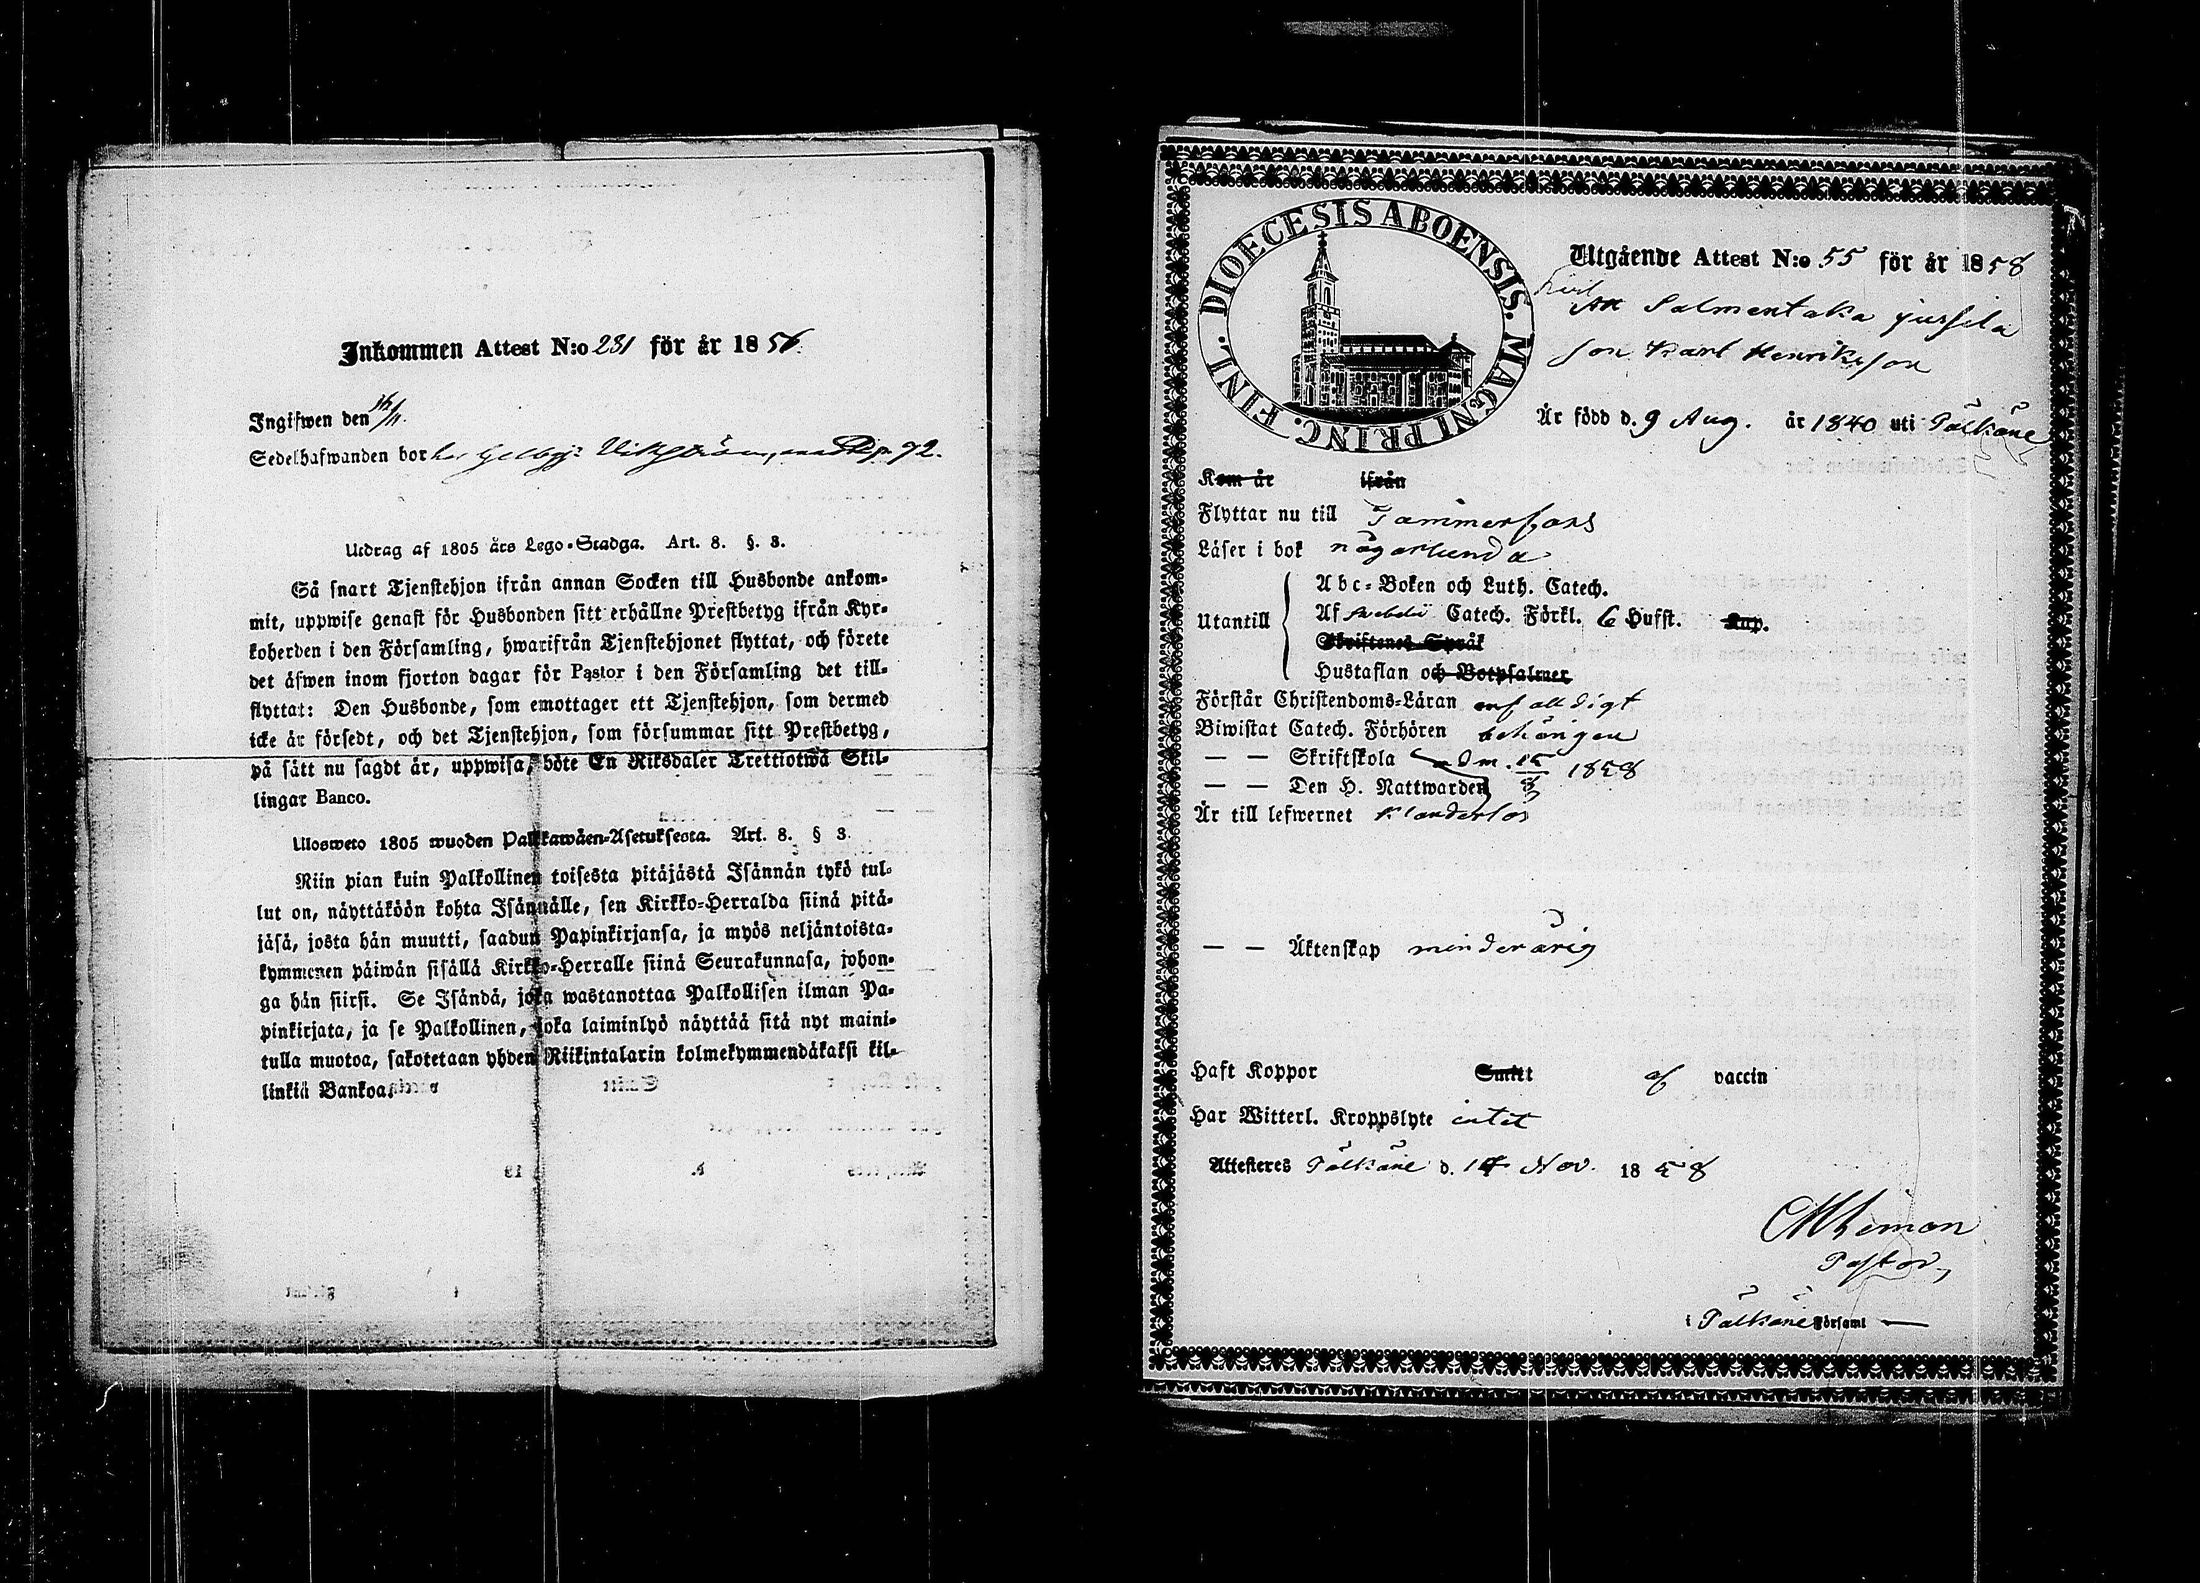 Inkommen Attest N:o 231 för år 1858.
Ingifwen den 16/11.
Sedelhafwanden bor hos 92.
Utdrag af 1805 års Lego-Stadga. Art. 8. §. 3.
Så snart Tjenstehjon ifrån annan Socken till Husbonde ankom-
mit, uppwise genast för Husbonden sitt erhållne Prestbetyg ifrån Kyr-
koherden i den Församling, hwarifrån Tjenstehjonet flyttat, och förete
det äfwen inom fjorton dagar för Pastor i den Församling det till-
flyttat: Den Husbonde, som emottager ett Tjenstehjon, som dermed
icke är försedt, och det Tjenstehjon, som försummar sitt Prestbetyg,
på sätt nu sagdt är, uppwisa, böte En Riksdaler Trettiotwå Skil-
lingar Banco.
Ulosweto 1805 wuoden Palkkawäen-Asetuksesta. Art. 8. § 3.
Niin pian kuin Palkollinen toisesta pitäjästä Isännän tykö tul-
lut on, näyttäköön kohta Isännälle, sen Kirkko-Herralda siinä pitä-
jäsä, josta hän muutti, saadun Papinkirjansa, ja myös neljäntoista-
kymmenen päiwän sisällä Kirkko-Herralle siinä Seurakunnasa, johon-
ga hän siirsi. Se Isändä, joka wastanottaa Palkollisen ilman Pa-
pinkirjata, ja se Palkollinen, joka laiminlyö näyttää sitä nyt maini-
tulla muotoa, sakotetaan yhden Riikintalarin kolmekymmendäkaksi kil-
linkiä Bankoa.
DIOECESIS ABOENSIS. MAGNI PRINC. FINL.
Utgående Attest N:o 55 för år 1858
Salmentaka jussila
son Karl Henriksson
Är född d. 9 Aug. år 1840 uti Pälkäne
Kom år ifrån
Flyttar nu till Tammerfors
Läser i bok någorlunda
Utantill
Abc-Boken och Luth. Catech.
Af Svebelii Catech. Förkl. 6 Hufst. Kap.
Skriftenes Språk
Hustaflan och Botpsalmer
Förstår Christendoms-Läran enfaldigt
Biwistat Catech. Förhören behörigen
— — Skriftskola adm. 15/8 1858
— — Den H. Nattwarden
Är till lefwernet klanderlös
— — Äktenskap minderårig
Haft Koppor Smitt af vaccin
Har Witterl. Kroppslyte intet
Attesteres Pälkäne d. 14 Nov. 1858
Pastor,
i Pälkäne Församl